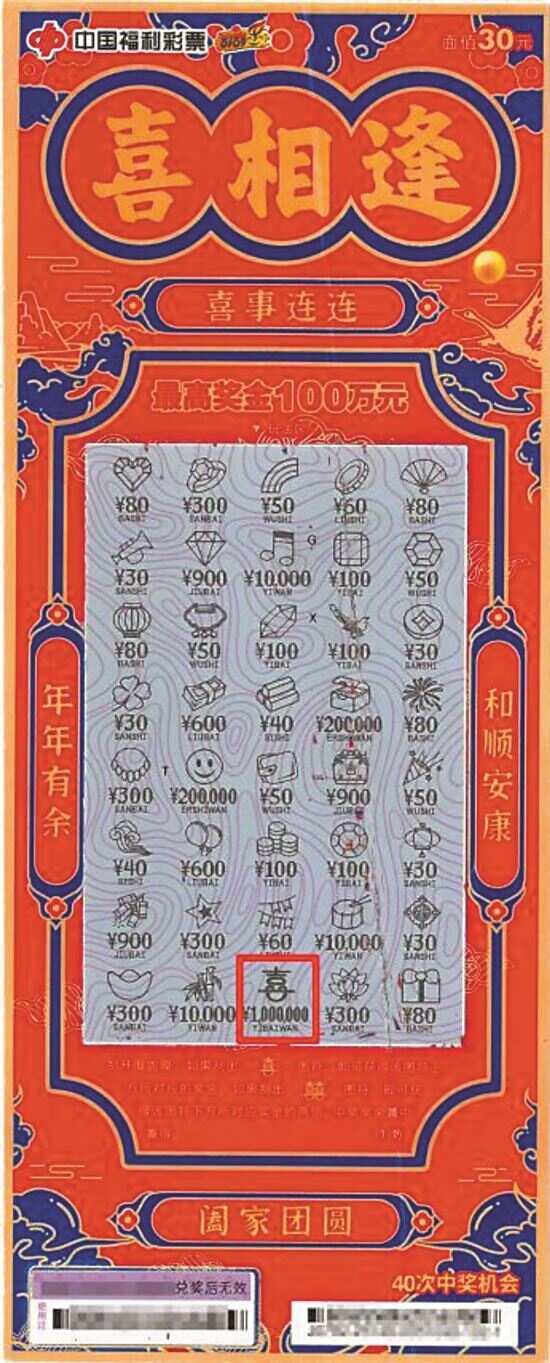 中国福利彩票 刮刮乐
面值30元
喜相逢
喜事连连
最高奖金100万元
¥80 ¥300 ¥50 ¥60 ¥80
BASHI SANBAI WUSHI LIUSHI BASHI
G
¥30 ¥900 ¥10,000 ¥100 ¥50
SANSHI JIUBAI YIWAN YIBAI WUSHI
X
¥80 ¥50 ¥100 ¥100 ¥30
BASHI WUSHI YIBAI YIBAI SANSHI
¥30 ¥600 ¥40 ¥200,000 ¥80
SANSHI LIUBAI SISHI ERSHIWAN BASHI
T
¥300 ¥200,000 ¥50 ¥900 ¥50
SANBAI ERSHIWAN WUSHI JIUBAI WUSHI
¥40 ¥600 ¥100 ¥100 ¥30
SISHI LIUBAI YIBAI YIBAI SANSHI
¥900 ¥300 ¥60 ¥10,000 ¥30
JIUBAI SANBAI LIUSHI YIWAN SANSHI
喜
¥300 ¥10,000 ¥1,000,000 ¥300 ¥80
SANBAI YIWAN YIBAIWAN SANBAI BASHI
年年有余
和顺安康
喜
囍
阖家团圆
兑奖后无效
40次中奖机会